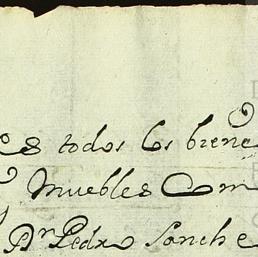 es todos los biene
Muebles Com
Dn Pedro Sanche